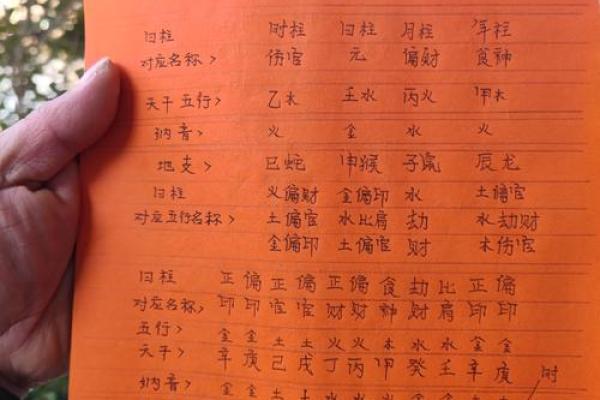 日柱 时柱 日柱 月柱 年柱
对应名称> 伤官 元 偏财 食神
天干五行> 乙木 壬水 丙火 甲木
纳音> 火 金 水 火
地支> 巳蛇 申猴 子鼠 辰龙
日柱 火偏财 金偏印 水 土偏官
对应五行名称> 土偏官 水比肩 劫 水劫财
金偏印 土偏官 财 木伤官
日柱 正偏正偏正偏食劫比正偏
对应名称> 印印官官财财神财肩印印
五行> 金金土土火火木水水金金
天干> 辛庚己戌丁丙甲癸壬辛庚 时
纳音> 金金土土水